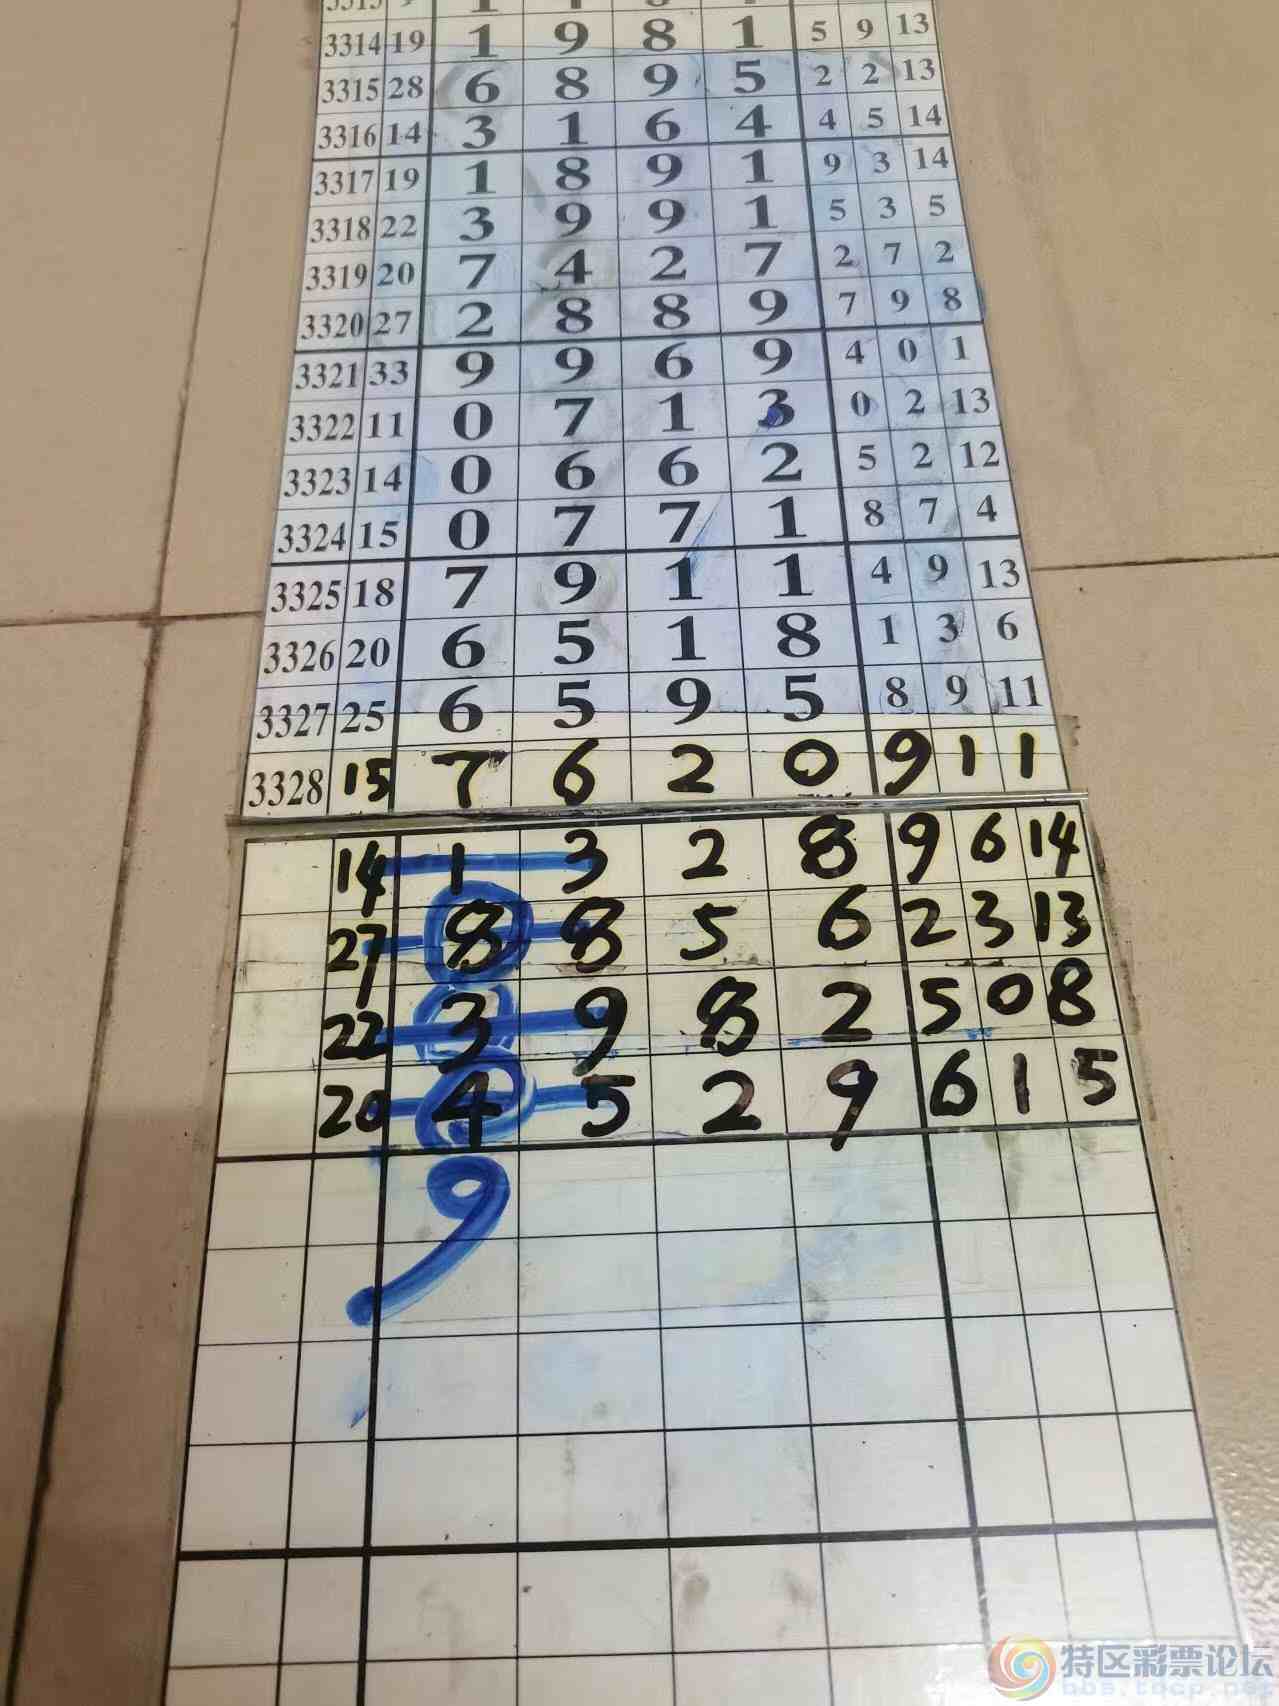 3314 19 1 9 8 1 5 9 13
3315 28 6 8 9 5 2 2 13
3316 14 3 1 6 4 4 5 14
3317 19 1 8 9 1 9 3 14
3318 22 3 9 9 1 5 3 5
3319 20 7 4 2 7 2 7 2
3320 27 2 8 8 9 7 9 8
3321 33 9 9 6 9 4 0 1
3322 11 0 7 1 3 0 2 13
3323 14 0 6 6 2 5 2 12
3324 15 0 7 7 1 8 7 4
3325 18 7 9 1 1 4 9 13
3326 20 6 5 1 8 1 3 6
3327 25 6 5 9 5 8 9 11
3328 15 7 6 2 0 9 1 1
14 1 3 2 8 9 6 14
27 8 8 5 6 2 3 13
22 3 9 8 2 5 0 8
20 4 5 2 9 6 1 5
9
特区彩票论坛
bbs.tdcp.net